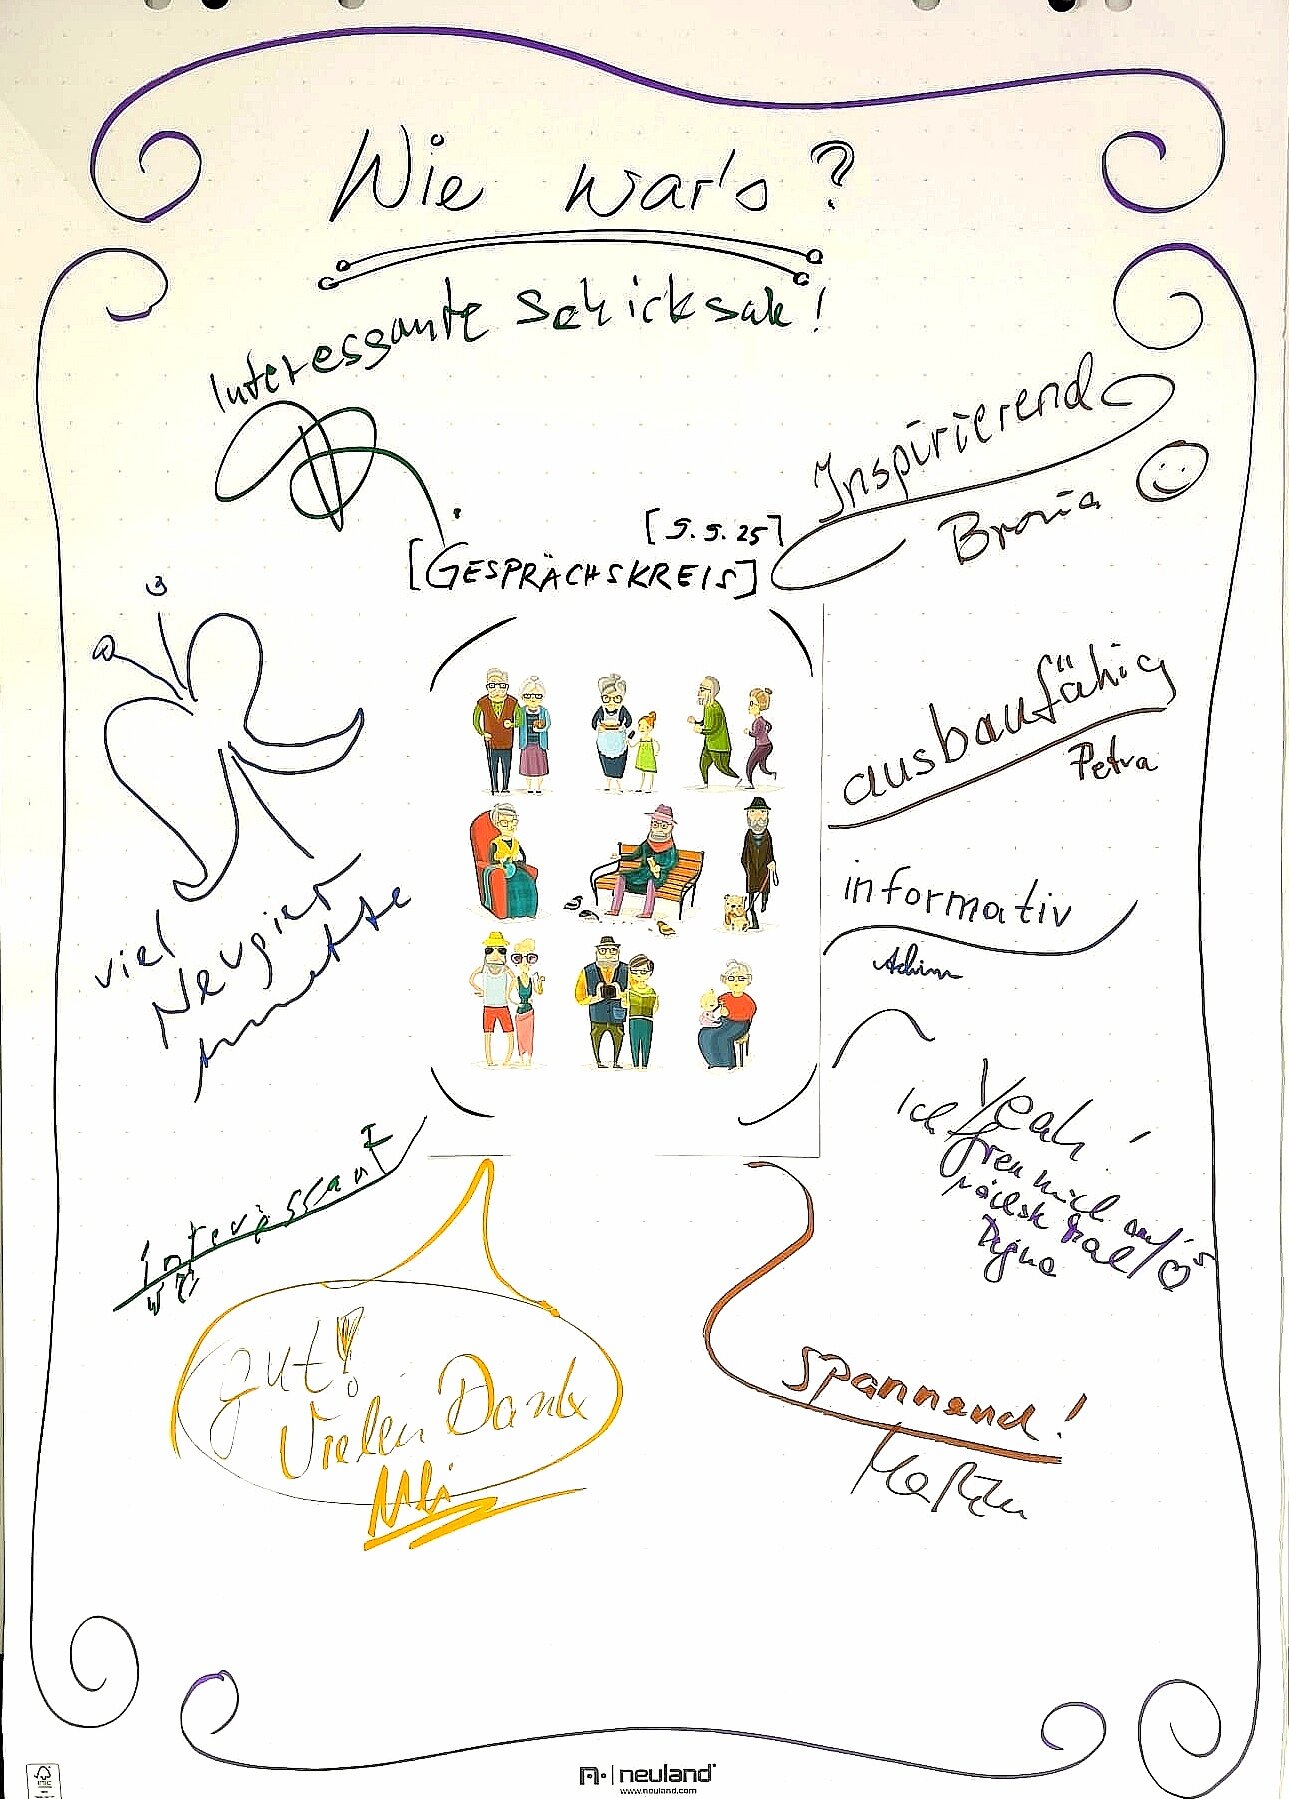 Wie war's?
Interessante Schicksale!
Inspirierend
Bronia
[9.9.25]
[GESPRÄCHSKREIS]
ausbaufähig
Petra
informativ
Achim
viel
Neugier
Yeah!
Ich freu mich auf's
nächste Mal
interessant
gut!
Vielen Dank
Uli
spannend!
neuland
www.neuland.com